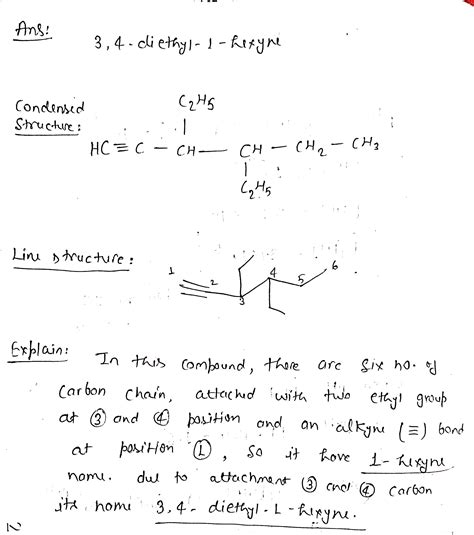 Ans:
3,4-diethyl-1-hexyne
Condensed
Structure:
C2H5
HC≡C — CH — CH — CH2 — CH3
C2H5
Line structure:
1 2 3 4 5 6
Explain: In this compound, there are six no. of
Carbon chain, attached with two ethyl group
at ③ and ④ position and an alkyne (≡) bond
at position ①, so it have 1-hexyne
name. due to attachment ③ and ④ carbon
its name 3,4-diethyl-1-hexyne.